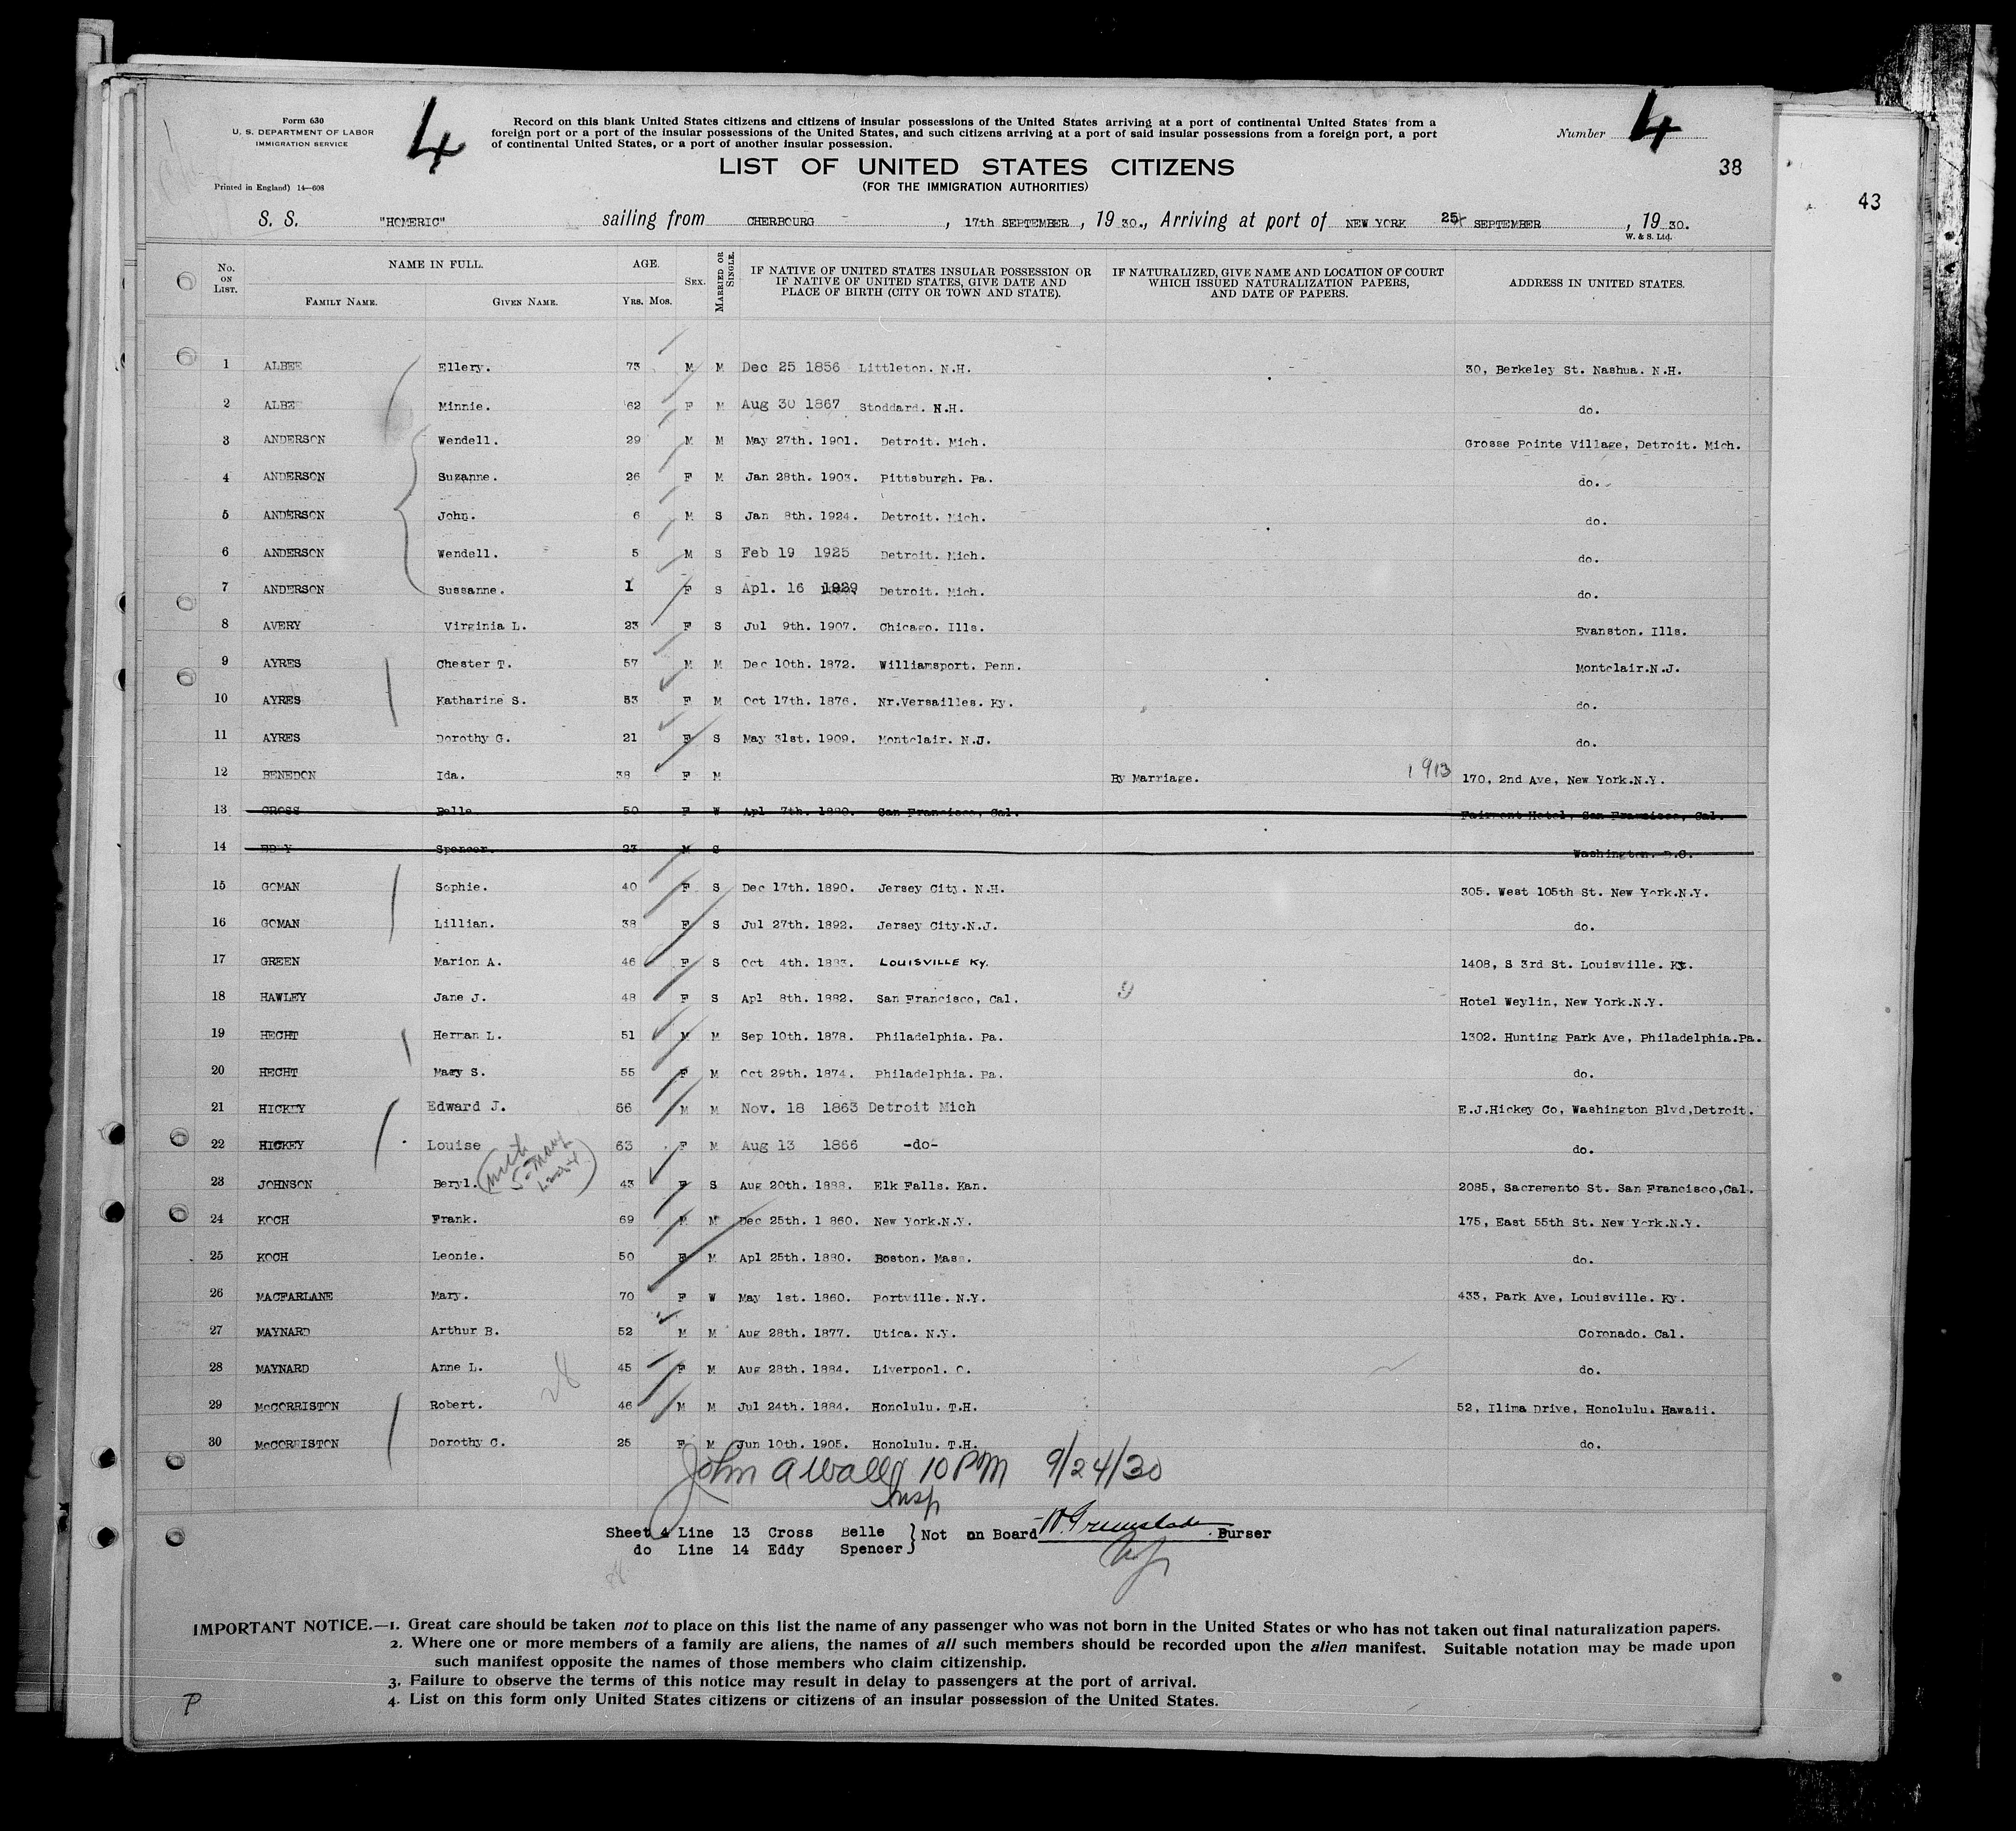 Form 630
U. S. DEPARTMENT OF LABOR
IMMIGRATION SERVICE
4
Record on this blank United States citizens and citizens of insular possessions of the United States arriving at a port of continental United States from a
foreign port or a port of the insular possessions of the United States, and such citizens arriving at a port of said insular possessions from a foreign port, a port
of continental United States, or a port of another insular possession.
Number 4
LIST OF UNITED STATES CITIZENS
(FOR THE IMMIGRATION AUTHORITIES)
38
43
Printed in England) 14—608
S. S. "HOMERIC" sailing from CHERBOURG , 17th SEPTEMBER , 19 30., Arriving at port of NEW YORK 25 SEPTEMBER , 19 30.
W. & S. Ltd.
No. ON LIST. NAME IN FULL. FAMILY NAME. GIVEN NAME. AGE. YRS. MOS. SEX. MARRIED OR SINGLE. IF NATIVE OF UNITED STATES INSULAR POSSESSION OR IF NATIVE OF UNITED STATES, GIVE DATE AND PLACE OF BIRTH (CITY OR TOWN AND STATE). IF NATURALIZED, GIVE NAME AND LOCATION OF COURT WHICH ISSUED NATURALIZATION PAPERS, AND DATE OF PAPERS. ADDRESS IN UNITED STATES.
1 ALBEE Ellery. 73 M M Dec 25 1856 Littleton. N.H. 30, Berkeley St. Nashua. N.H.
2 ALBEE Minnie. 62 F M Aug 30 1867 Stoddard. N.H. do.
3 ANDERSON Wendell. 29 M M May 27th. 1901. Detroit. Mich. Grosse Pointe Village, Detroit. Mich.
4 ANDERSON Suzanne. 26 F M Jan 28th. 1903. Pittsburgh. Pa. do.
5 ANDERSON John. 6 M S Jan 8th. 1924. Detroit. Mich. do.
6 ANDERSON Wendell. 5 M S Feb 19 1925 Detroit. Mich. do.
7 ANDERSON Sussanne. 1 F S Apl. 16 1929 Detroit. Mich. do.
8 AVERY Virginia L. 23 F S Jul 9th. 1907. Chicago. Ills. Evanston. Ills.
9 AYRES Chester T. 57 M M Dec 10th. 1872. Williamsport. Penn. Montclair.N.J.
10 AYRES Katharine S. 53 F M Oct 17th. 1876. Nr.Versailles. Ky. do.
11 AYRES Dorothy G. 21 F S May 31st. 1909. Montclair. N.J. do.
12 BENEDON Ida. 38 F M By Marriage. 1913 170, 2nd Ave, New York.N.Y.
13 CROSS Belle 50 F W Apl 7th. 1880. San Francisco, Cal. Fairmont Hotel, San Francisco, Cal.
14 EDDY Spencer. 23 M S Washington. D.C.
15 GOMAN Sophie. 40 F S Dec 17th. 1890. Jersey City. N.H. 305. West 105th St. New York.N.Y.
16 GOMAN Lillian. 38 F S Jul 27th. 1892. Jersey City.N.J. do.
17 GREEN Marion A. 46 F S Oct 4th. 1883. LOUISVILLE Ky. 1408, S 3rd St. Louisville. Ky.
18 HAWLEY Jane J. 48 F S Apl 8th. 1882. San Francisco, Cal. 9 Hotel Weylin, New York.N.Y.
19 HECHT Herman L. 51 M M Sep 10th. 1878. Philadelphia. Pa. 1302. Hunting Park Ave, Philadelphia.Pa.
20 HECHT Mary S. 55 F M Oct 29th. 1874. Philadelphia. Pa. do.
21 HICKEY Edward J. 66 M M Nov. 18 1863 Detroit Mich E.J.Hickey Co, Washington Blvd,Detroit.
22 HICKEY Louise 63 F M Aug 13 1866 -do- do.
23 JOHNSON Beryl. 43 F S Aug 20th. 1888. Elk Falls. Kan. 2085, Sacremento St. San Francisco,Cal.
24 KOCH Frank. 69 M M Dec 25th. 1860. New York.N.Y. 175, East 55th St. New York.N.Y.
25 KOCH Leonie. 50 F M Apl 25th. 1880. Boston. Mass. do.
26 MACFARLANE Mary. 70 F W May 1st. 1860. Portville. N.Y. 433, Park Ave, Louisville. Ky.
27 MAYNARD Arthur B. 52 M M Aug 28th. 1877. Utica. N.Y. Coronado. Cal.
28 MAYNARD Anne L. 45 F M Aug 28th. 1884. Liverpool. O. do.
29 McCORRISTON Robert. 46 M M Jul 24th. 1884. Honolulu. T.H. 52, Ilima Drive, Honolulu. Hawaii.
30 McCORRISTON Dorothy C. 25 F M Jun 10th. 1905. Honolulu. T.H. do.
John A Wally 10 PM 9/24/30
Insp
Sheet 4 Line 13 Cross Belle } Not on Board Purser
do Line 14 Eddy Spencer
IMPORTANT NOTICE.—1. Great care should be taken not to place on this list the name of any passenger who was not born in the United States or who has not taken out final naturalization papers.
2. Where one or more members of a family are aliens, the names of all such members should be recorded upon the alien manifest. Suitable notation may be made upon
such manifest opposite the names of those members who claim citizenship.
3. Failure to observe the terms of this notice may result in delay to passengers at the port of arrival.
4. List on this form only United States citizens or citizens of an insular possession of the United States.
P